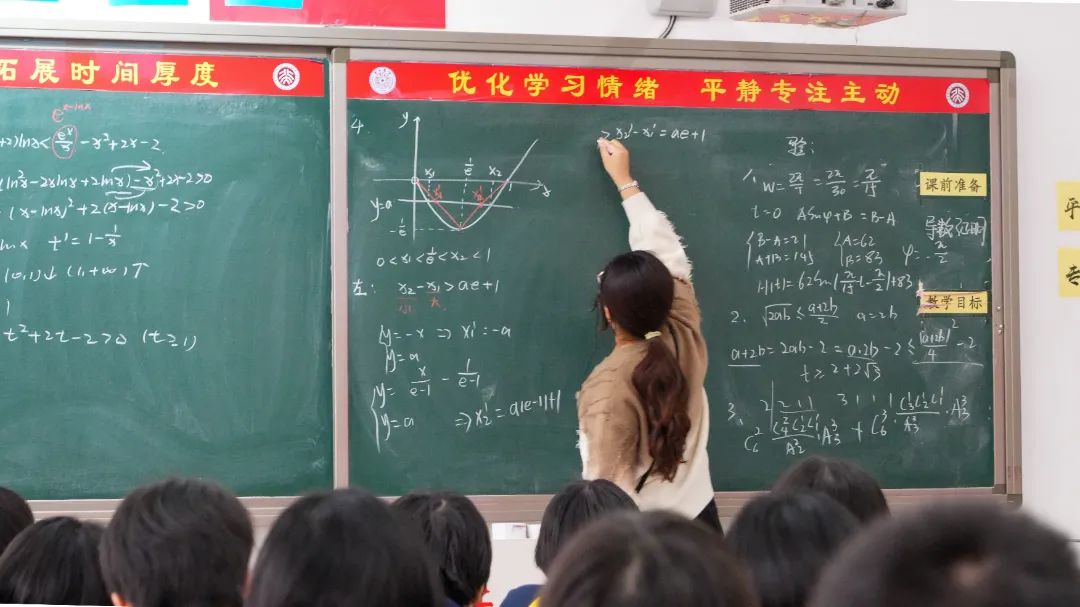 拓展时间厚度
优化学习情绪 平静专注主动
e^{x-lnx}
+2)lnx< e^x/x -x²+2x-2
ln²x-2xlnx+2lnx)-x²+2x-2>0
(x-lnx)²+2(x-lnx)-2>0
lnx t'=1-1/x
(0,1)↓ (1,+∞)↑
t²+2t-2>0 (t≥1)
4.
y
x₁ 1/e x₂ x
y=a
-1/e
0<x₁<1/e<x₂<1
左: x₂-x₁>ae+1
小 大
{y=-x ⇒ x₁'=-a
y=a
{y=x/(e-1) - 1/(e-1)
y=a ⇒x₂'=a(e-1)+1
>x₂'-x₁'=ae+1
验:
1. W=2π/T=2π/30=π/15
t=0 Asinφ+B=B-A
{B-A=21 {A=62
A+B=145 B=83 φ=-π/2
H(t)=62sin(π/15 t-π/2)+83
2. √2ab≤(a+2b)/2 a=2b
a+2b=2ab-2=a·2b-2≤(a+2b)²/4-2
t≥2+2√3
3. 2 2 1 1 3 1 1 1
课前准备
导数证明
教学目标
平
专